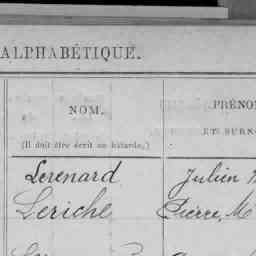 ALPHABÉTIQUE.
NOM. PRÉNO
(Il doit être écrit en bâtarde.) ET SURN
Lerenard Julien
Leriche Pierre, M